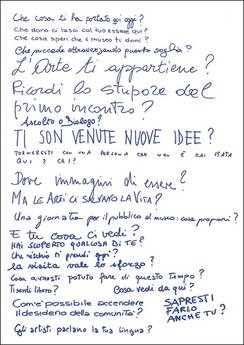 Che cosa ti ha portato qui oggi?
Che dono ci lasci col tuo essere qui?
Che cosa speri che il museo ti doni?
Che succede attraversando questa soglia?
L'Arte ti appartiene?
Ricordi lo stupore del
primo incontro?
Ascolto o Dialogo?
TI SON VENUTE NUOVE IDEE?
TORNERESTI CON UNA PERSONA CHE NON È MAI STATA
QUI? CHI?
Dove immagini di essere?
MA LE ARTI CI SALVANO LA VITA?
Una giornata per il pubblico al museo: cosa proponi?
E tu cosa ci vedi?
HAI SCOPERTO QUALCOSA DI TE?
Che rischio ti prendi oggi?
la visita vale lo sforzo?
Cosa avresti potuto fare di questo tempo?
Ti senti libero?
Cosa vedi da qui?
Com'è possibile accendere
il desiderio della comunità?
SAPRESTI
FARLO
ANCHE TU?
Gli artisti parlano la tua lingua?